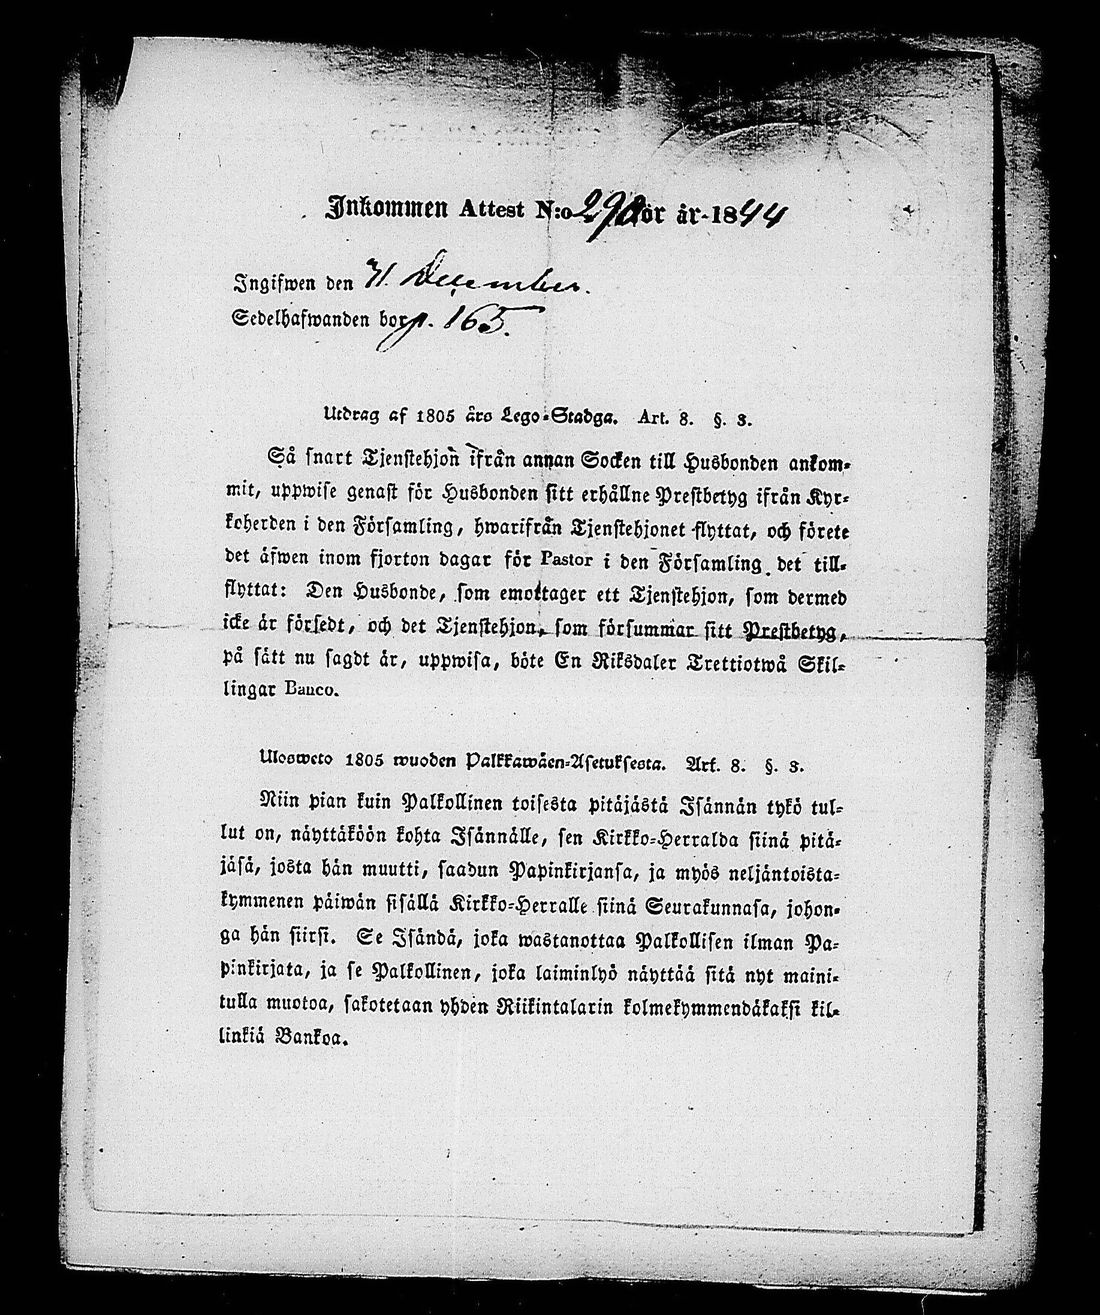 Inkommen Attest N:o 290 för år 1844
Ingifwen den 31. December.
Sedelhafwanden bor p. 165.
Utdrag af 1805 års Lego-Stadga. Art. 8. §. 3.
Så snart Tjenstehjon ifrån annan Socken till Husbonden ankom-
mit, uppwise genast för Husbonden sitt erhållne Prestbetyg ifrån Kyr-
koherden i den Församling, hwarifrån Tjenstehjonet flyttat, och förete
det äfwen inom fjorton dagar för Pastor i den Församling det till-
flyttat: Den Husbonde, som emottager ett Tjenstehjon, som dermed
icke är försedt, och det Tjenstehjon, som försummar sitt Prestbetyg,
på sätt nu sagdt är, uppwisa, böte En Riksdaler Trettiotwå Skil-
lingar Banco.
Ulosweto 1805 wuoden Palkkawäen-Asetuksesta. Art. 8. §. 3.
Niin pian kuin Palkollinen toisesta pitäjästä Isännän tykö tul-
lut on, näyttäköön kohta Isännälle, sen Kirkko-Herralda siinä pitä-
jäsä, josta hän muutti, saadun Papinkirjansa, ja myös neljäntoista-
kymmenen päiwän sisällä Kirkko-Herralle siinä Seurakunnasa, johon-
ga hän siirsi. Se Isändä, joka wastanottaa Palkollisen ilman Pa-
pinkirjata, ja se Palkollinen, joka laiminlyö näyttää sitä nyt maini-
tulla muotoa, sakotetaan yhden Riikintalarin kolmekymmendäkaksi kil-
linkiä Bankoa.